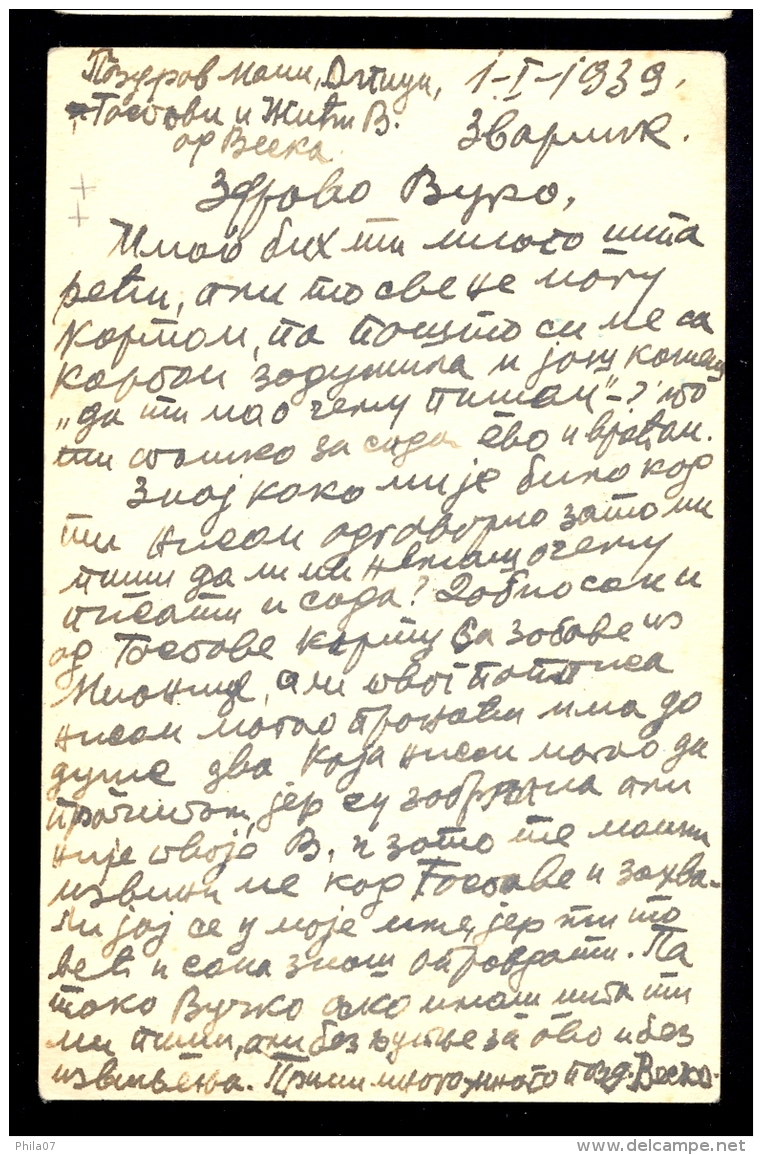 Поздрав мами, Олгици, 1-I-1939.
Гостови и Жићи В.
од Веска.
Здраво Вуко,
Имао бих ти много шта
рећи, али то све не могу
картом, па пошто си ме са
картом задужила и још кажеш
„да ти ма о чему пишем"-? то
ти само за сада ево и враћам.
Знај како ми је било код
ти нисам одговорио зато ми
пиши да ли ми имаш о чему
писати и сада? Добио сам и
од Гостове карту са забаве из
Мионице, али твог потписа
нисам могао пронаћи има до
душе два која нисам могао да
прочитам, јер су забрљана али
није твоје В. и зато те молим
извини ме код Гостове и захва-
ли јој се у моје име, јер ти то
већ и сама знаш оправдати. Па
тако Вучко ако имаш шта ти
ми пиши, али без љутње за ово и без
извињења. Прими много много позд. Веско.
Phila07
www.delcampe.net